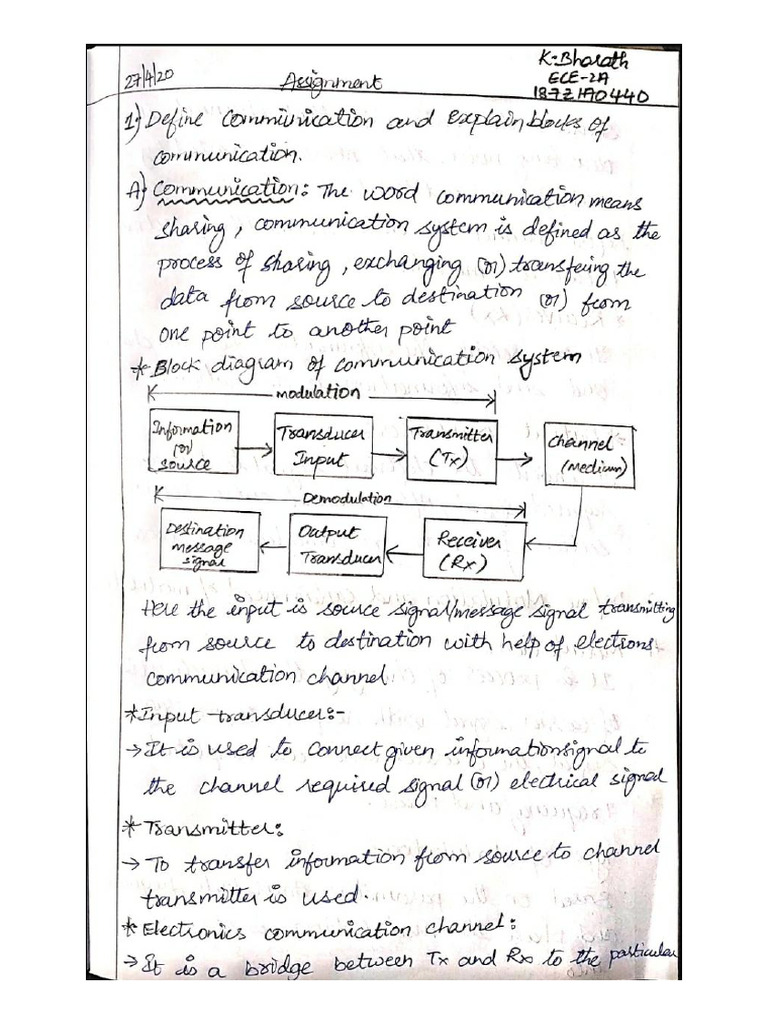 K.Bharath
27/4/20 Assignment ECE-2A
1872170440
1) Define Communication and explain blocks of
communication.
A) Communication: The word communication means
sharing, communication system is defined as the
process of sharing, exchanging (or) transfering the
data from source to destination (or) from
one point to another point
* Block diagram of communication system
modulation
Information (or) source
Transducer Input
Transmitter (Tx)
Channel (medium)
Demodulation
Destination message signal
Output Transducer
Receiver (Rx)
Here the input is source signal/message signal transmitting
from source to destination with help of electrons
communication channel
* Input transducer:-
→ It is used to connect given information signal to
the channel required signal (or) electrical signal
* Transmitter:
→ To transfer information from source to channel
transmitter is used.
* Electronics communication channel:
→ It is a bridge between Tx and Rx to the particular